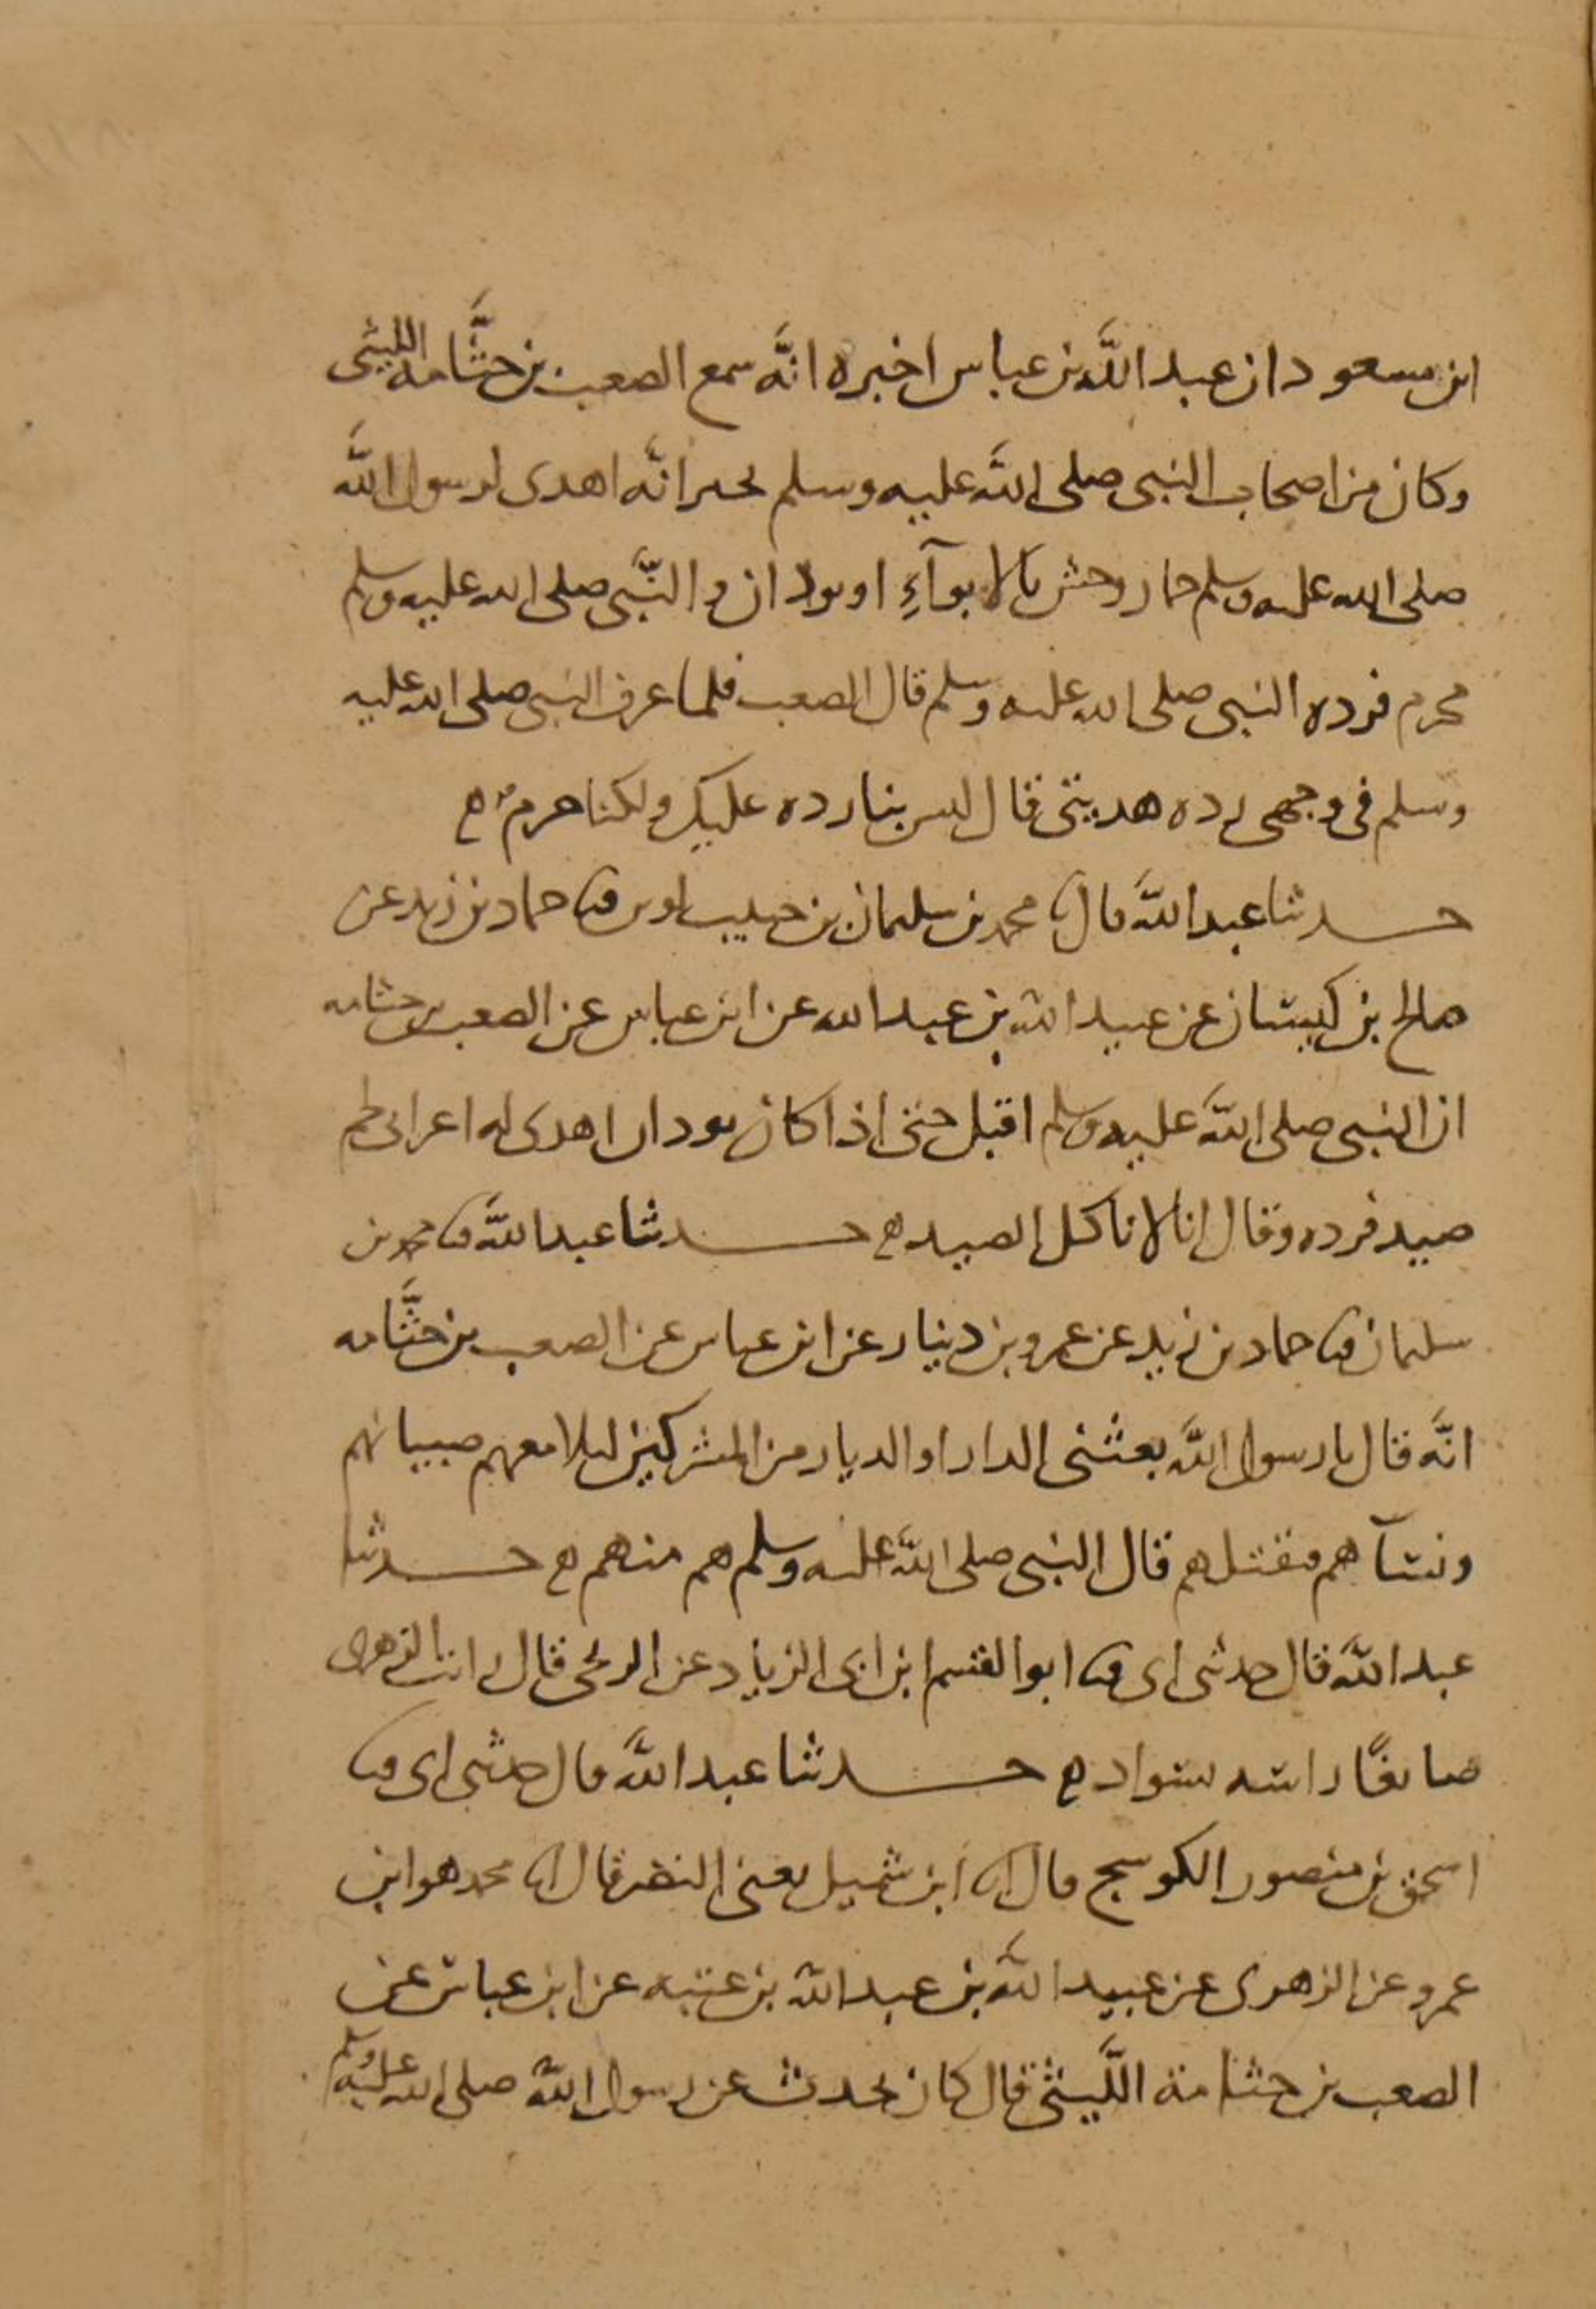 ابن مسعود ان عبد الله بن عباس اخبره انَّه سمع الصعب بن جثَّامه الليثى
وكان من اصحاب النبى صلى الله عليه وسلم يخبر انَّه اهدى لرسول الله
صلى الله عليه وسلم حمار وحش بالابوآءِ او بودان والنَّبى صلى الله عليه وسلم
محرم فرده النبى صلى الله عليه وسلم قال الصعب فلما عرف النبى صلى الله عليه
وسلم فى وجهى رده هديتى قال ليس بنا رده عليك ولكنا حرم ه
حدثنا عبد الله قال نا محمد بن سليمان بن حبيب لوين ثنا حماد بن زيد عن
صالح بن كيسان عن عبيد الله بن عبد الله عن ابن عباس عن الصعب بن جثامه
ان النبى صلى الله عليه وسلم اقبل حتى اذا كان بودان اهدى له اعرابى لحم
صيد فرده وقال انا لا ناكل الصيد ه حدثنا عبد الله ثنا محمد بن
سليمان ثنا حماد بن زيد عن عمرو بن دينار عن ابن عباس عن الصعب بن جثَّامه
انَّه قال يا رسول الله بعثنى الدار او الديار من المشركين ليلا معهم صبيانهم
ونسآهم فنقتلهم قال النبى صلى الله عليه وسلم هم منهم ه حدثنا
عبد الله قال حدثنى ابى ثنا ابو القسم ابن ابى الزياد عن قال رايت الزهرى
صابغًا راسه بسواد ه حدثنا عبد الله قال حدثنى ابى ثنا
اسحق بن منصور الكوسج قال انا ابن شميل يعنى النضر قال انا محمد هو ابن
عمرو عن الزهرى عن عبيد الله بن عبد الله بن عتبه عن ابن عباس عن
الصعب بن جثامة اللَّيثى قال كان يحدث عن رسول الله صلى الله عليه وسلم